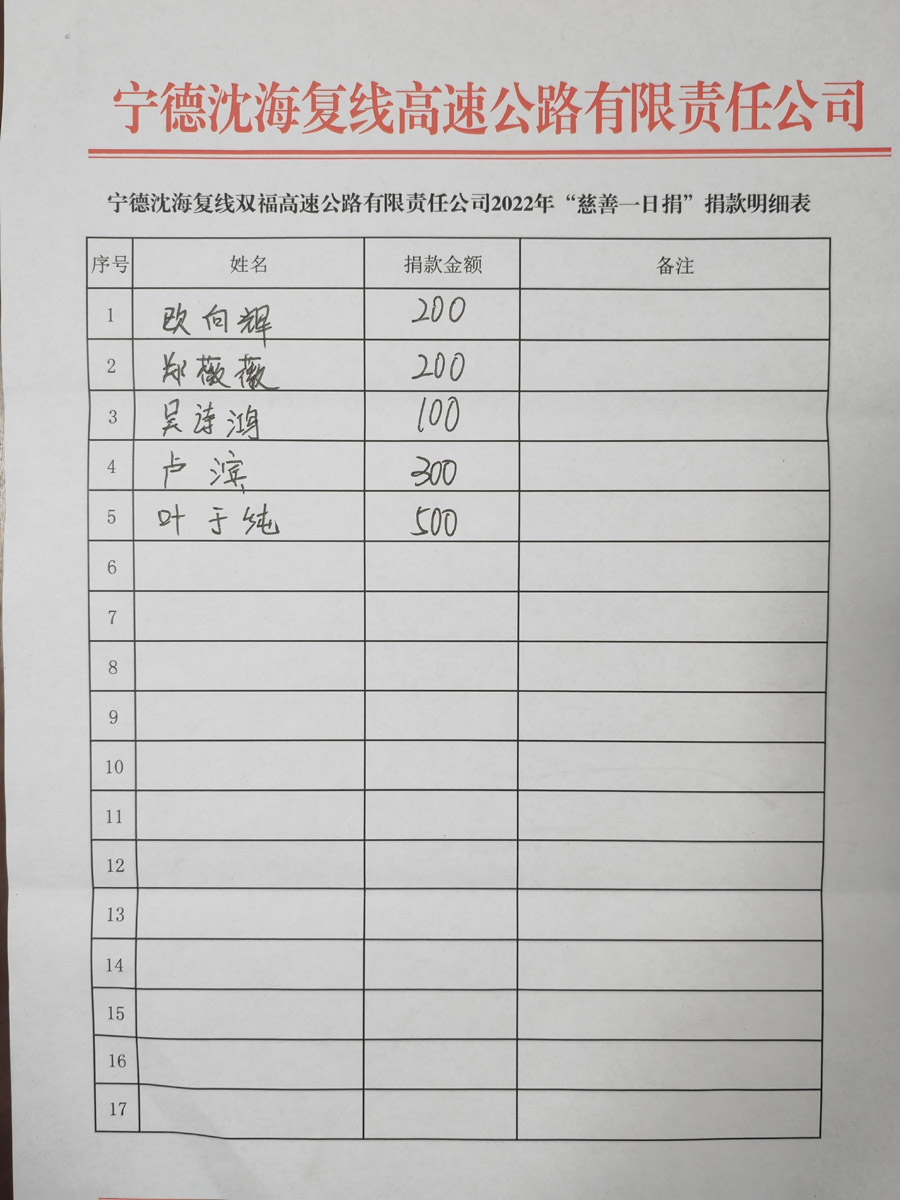 宁德沈海复线高速公路有限责任公司
宁德沈海复线双福高速公路有限责任公司2022年“慈善一日捐”捐款明细表
序号 姓名 捐款金额 备注
1 欧向辉 200
2 郑薇薇 200
3 吴诗鸿 100
4 卢滨 300
5 叶于纯 500
6
7
8
9
10
11
12
13
14
15
16
17